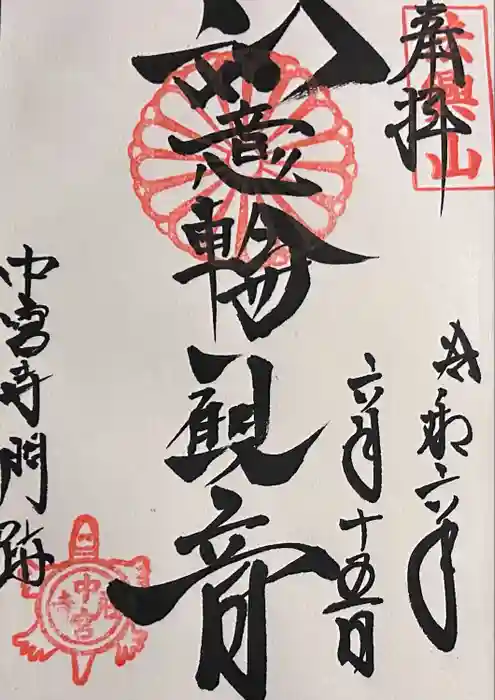 奉拝
法興山
令和六年
六月十五日
如意輪観音
中宮寺門跡
中宮